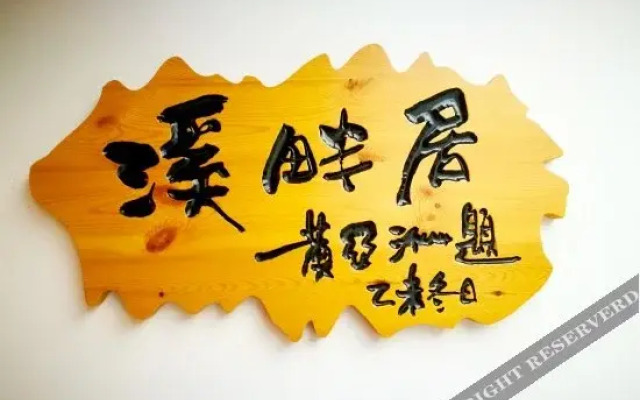 溪畔居
黄亞洲題
乙未冬日
IGHT RESERVERD